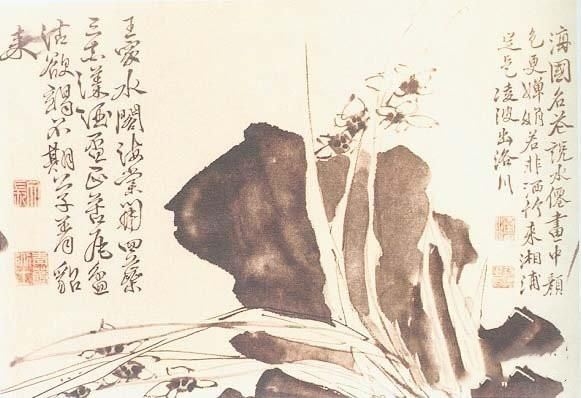 海國名花說水僊畫中顏
色更嬋娟若非洒竹來湘浦
定是凌波出洛川
王家水閣海棠開四葉
三朵漾酒盃正苦瓦盆
沽欲竭不期公子着貂
來